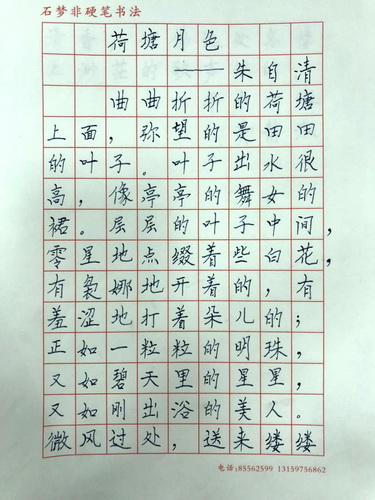 石梦非硬笔书法
荷塘月色
——朱自清
曲曲折折的荷塘
上面，弥望的是田田
的叶子。叶子出水很
高，像亭亭的舞女的
裙。层层的叶子中间，
零星地点缀着些白花，
有袅娜地开着的，有
羞涩地打着朵儿的；
正如一粒粒的明珠，
又如碧天里的星星，
又如刚出浴的美人。
微风过处，送来缕缕
电话:85562599 13159756862